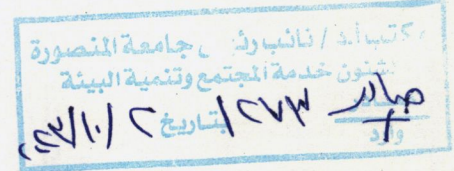 مكتب أ.د / نائب رئيس جامعة المنصورة
لشئون خدمة المجتمع وتنمية البيئة
صادر ٢٧٣ بتاريخ
وارد